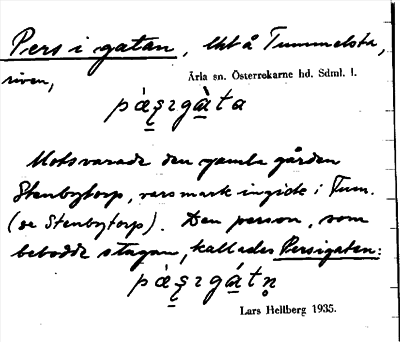 Pers i gatan, lht å Tummelsta,
riven,
Ärla sn. Österrekarne hd. Sdml. l.
Motsvarade den gamla gården
Stenbytorp, vars mark ingick i Tum.
(se Stenbytorp). Den person, som
bebodde stugan, kallades Persigaten:
Lars Hellberg 1935.